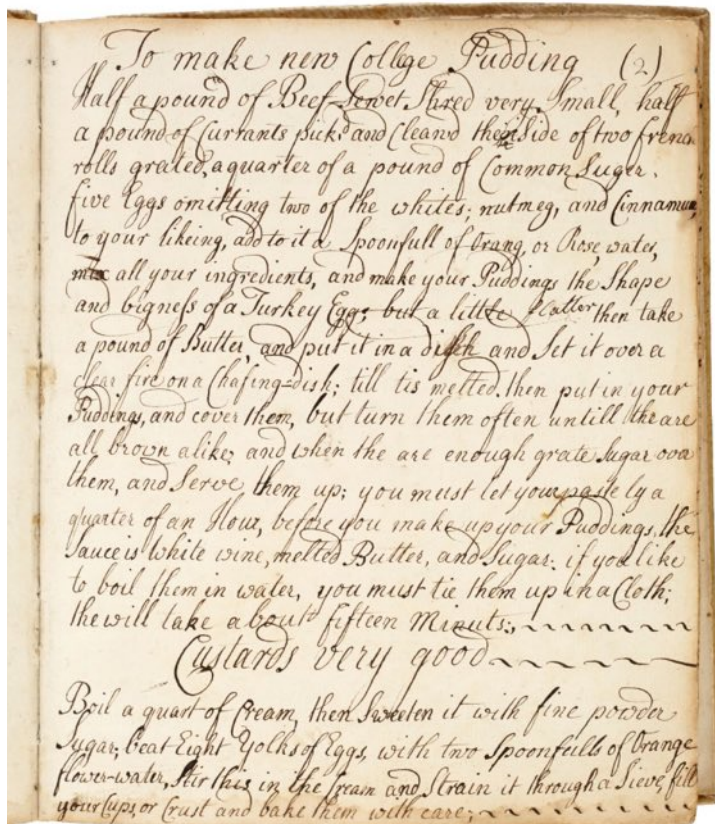 To make new College Pudding (2)
Half a pound of Beef-Sewet Shred very Small, half
a pound of Currants pick'd and Cleand the inSide of two french
rolls grated, a quarter of a pound of Common Suger.
five Eggs omitting two of the whites; nutmeg, and Cinnamun,
to your likeing, add to it a Spoonfull of Orang, or Rose, water,
mix all your ingredients, and make your Puddings the Shape
and bigness of a Turkey Egg; but a little flatter then take
a pound of Butter, and put it in a dish and Set it over a
clear fire on a Chafing=dish; till tis melted. then put in your
Puddings, and cover them, but turn them often untill the are
all brown alike, and when the are enough grate Sugar over
them, and Serve them up; you must let your paste ly a
quarter of an Hour, before you make up your Puddings, the
Sauce is White wine, melted Butter, and Sugar. if you like
to boil them in water, you must tie them up in a Cloth;
the will take about fifteen Minuts;
Custards very good
Boil a quart of Cream, then Sweeten it with fine powder
Sugar; beat Eight Yolks of Eggs, with two Spoonfulls of Orange
flower-water, Stir this in the Cream and Strain it through a Sieve, fill
your Cups, or Crust and bake them with care;